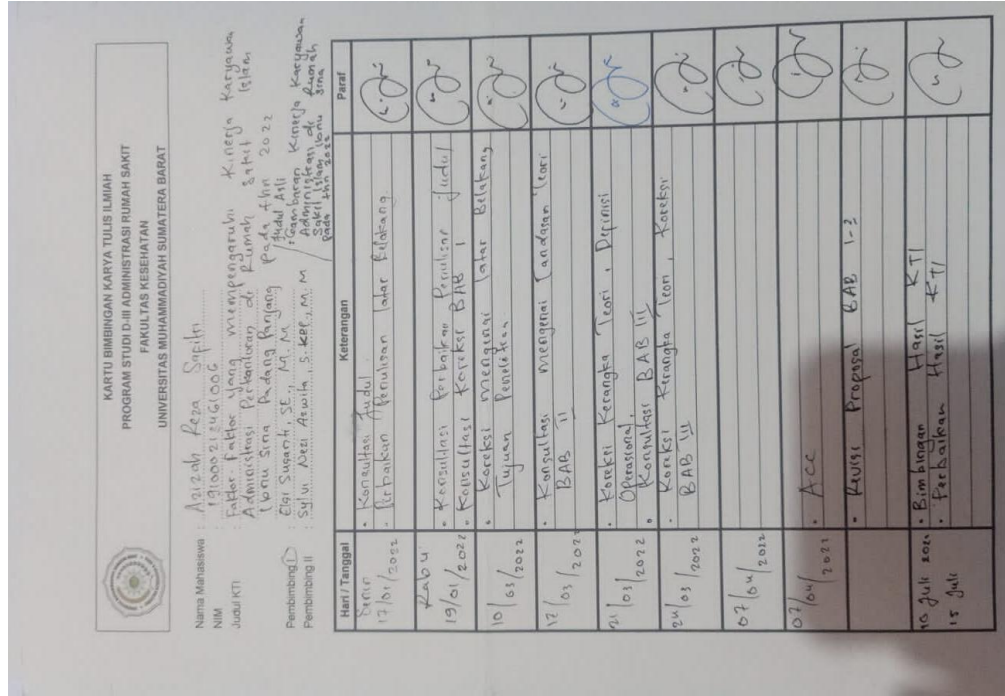 KARTU BIMBINGAN KARYA TULIS ILMIAH
PROGRAM STUDI D-III ADMINISTRASI RUMAH SAKIT
FAKULTAS KESEHATAN
UNIVERSITAS MUHAMMADIYAH SUMATERA BARAT
Nama Mahasiswa : Azizah Reza Sapitri
NIM : 191000212461006
Judul KTI : Faktor-Faktor yang mempengaruhi Kinerja Karyawan
Administrasi Perkantoran di Rumah Sakit Islam
Ibnu Sina Padang Panjang pada thn 2022
Pembimbing I : Elsi Susanti, SE., M.M
Pembimbing II : Sylvi Nezi Azwita, S.KEP., M.M
Judul Asli
: Gambaran Kinerja Karyawan
Administrasi di Rumah
Sakit Islam Ibnu Sina
pada thn 2022
Hari / Tanggal Keterangan Paraf
Senin • Konsultasi Judul
17/01/2022 • Perbaikan Penulisan latar Belakang
Rabu • Konsultasi Perbaikan Penulisan Judul
19/01/2022 • Konsultasi Koreksi BAB I
10/03/2022 • Koreksi mengenai latar Belakang
Tujuan Penelitian
12/03/2022 • Konsultasi mengenai Landasan Teori
BAB II
21/03/2022 • Koreksi Kerangka Teori, Depinisi
Operasional,
• Konsultasi BAB III
24/03/2022 • Koreksi Kerangka Teori, Koreksi
BAB III
07/04/2022
07/04/2022 • Acc
• Revisi Proposal BAB 1-3
10 Juli 2022 • Bimbingan Hasil KTI
15 Juli • Perbaikan Hasil KTI